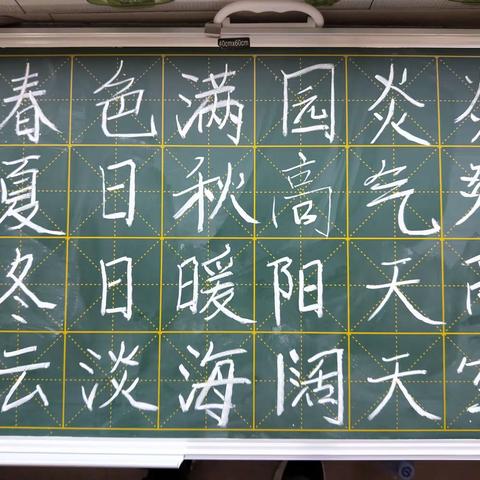 40cmx60cm
春色满园炎炎
夏日秋高气爽
冬日暖阳天高
云淡海阔天空